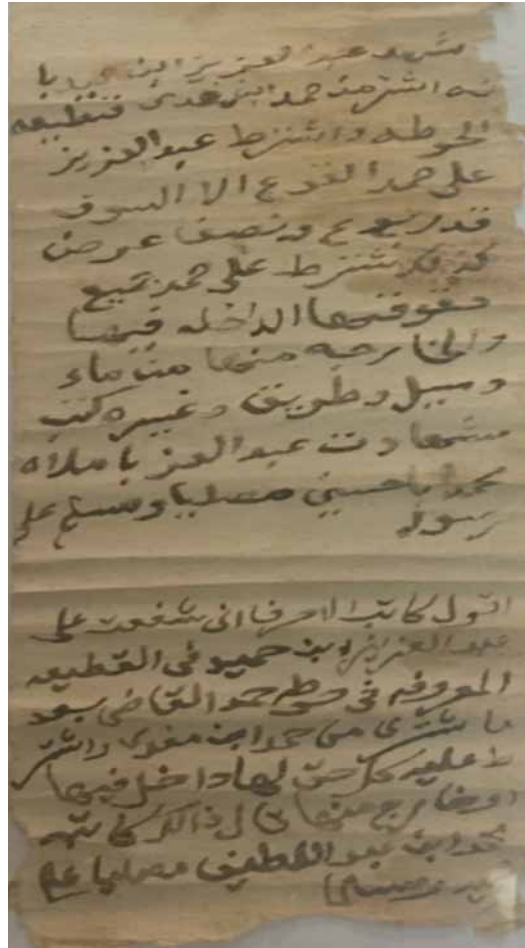 شهد عبد العزيز ابن حميد با
نه اشتر من حمد ابن مغدى قطيعه
الحوطه واشترط عبد العزيز
على حمد الفدع الا السوق
قدر بوع ونصف عرض
اشترط على حمد جميع
حقوقها الداخله فيها
والخارجه منها من ماء
وسبيل وطريق وغيره كتب
شهادت عبد العز باملاه
محمد باحسين مصليا ومسلم على
رسوله
اقول كاتب الاحرف انى شفعت على
عبد العزيز ابن حميد فى القطيعه
المعروفه فى حوطه حمد القاضى بعد
ما شترى من حمد ابن مغدى واشتر
ط عليه كل حق لها داخل فيها
او خارج منها قال ذالك كاتبه
محمد ابن عبد اللطيف مصليا على
ومسلم